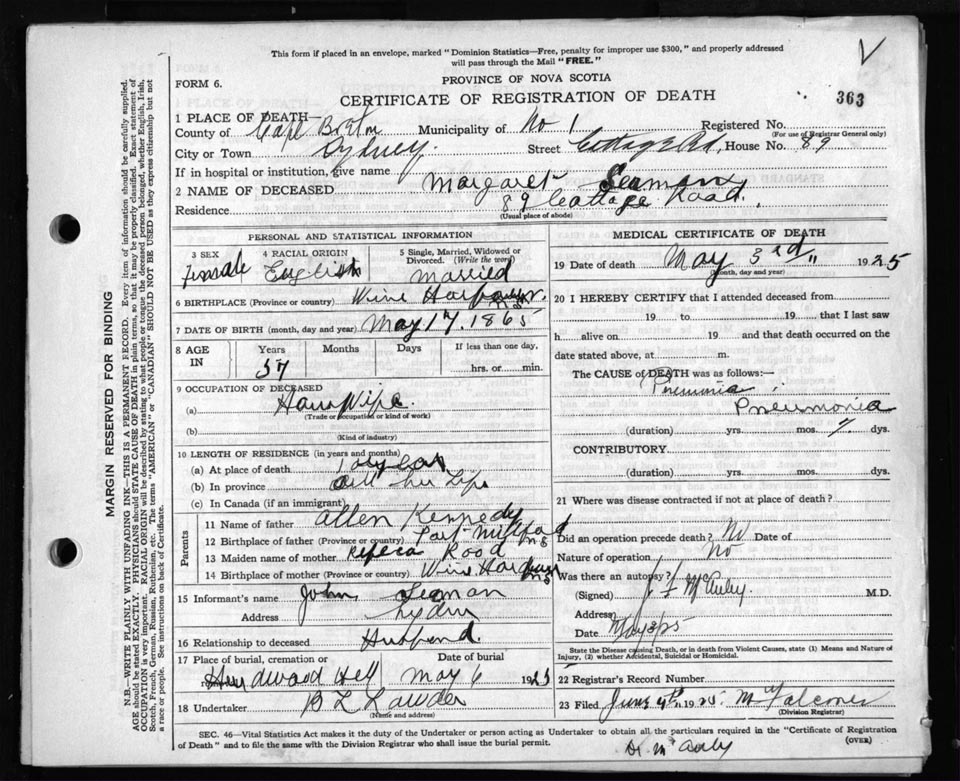 This form if placed in an envelope, marked "Dominion Statistics—Free, penalty for improper use $300," and properly addressed
will pass through the Mail "FREE."
FORM 6.
PROVINCE OF NOVA SCOTIA
CERTIFICATE OF REGISTRATION OF DEATH
363
1 PLACE OF DEATH—
County of Cape Breton Municipality of No 1 Registered No.
(For use of Registrar General only)
City or Town Sydney Street Cottage Rd. House No. 89
If in hospital or institution, give name
2 NAME OF DECEASED Margaret Seaman
Residence 89 Cottage Road.
(Usual place of abode)
PERSONAL AND STATISTICAL INFORMATION
3 SEX Female
4 RACIAL ORIGIN English
5 Single, Married, Widowed or Divorced. (Write the word) Married
6 BIRTHPLACE (Province or country) Wine Harbour N.S.
7 DATE OF BIRTH (month, day and year) May 17, 1865
8 AGE IN Years 57 Months Days If less than one day, hrs. or min.
9 OCCUPATION OF DECEASED
(a) HousWife
(Trade or occupation or kind of work)
(b)
(Kind of industry)
10 LENGTH OF RESIDENCE (in years and months)
(a) At place of death
(b) In province all her Life
(c) In Canada (if an immigrant)
Parents
11 Name of father Allen Kennedy
12 Birthplace of father (Province or country) N S
13 Maiden name of mother Rood
14 Birthplace of mother (Province or country) Wine Harbour N S
15 Informant's name John Seaman
Address Sydney
16 Relationship to deceased Husbend.
17 Place of burial, cremation or Hardwood Hill
Date of burial May 6 1925
18 Undertaker
(Name and address)
MEDICAL CERTIFICATE OF DEATH
19 Date of death May 3rd 1925
(month, day and year)
20 I HEREBY CERTIFY that I attended deceased from
19 to 19 that I last saw
h alive on 19 and that death occurred on the
date stated above, at m.
The CAUSE of DEATH was as follows:—
Pneumonia
(duration) yrs. mos. 7 dys.
CONTRIBUTORY
(duration) yrs. mos. dys.
21 Where was disease contracted if not at place of death?
Did an operation precede death? No Date of
Nature of operation No
Was there an autopsy?
(Signed) McAuley M.D.
Address
Date May 3/25
State the Disease causing Death, or in death from Violent Causes, state (1) Means and Nature of
Injury, (2) whether Accidental, Suicidal or Homicidal.
22 Registrar's Record Number
23 Filed June 1925
(Division Registrar)
SEC. 46—Vital Statistics Act makes it the duty of the Undertaker or person acting as Undertaker to obtain all the particulars required in the "Certificate of Registration
of Death" and to file the same with the Division Registrar who shall issue the burial permit.
(OVER)
MARGIN RESERVED FOR BINDING
N.B.—WRITE PLAINLY WITH UNFADING INK—THIS IS A PERMANENT RECORD. Every item of information should be carefully supplied.
AGE should be stated EXACTLY. PHYSICIANS should STATE CAUSE OF DEATH in plain terms, so that it may be properly classified. Exact statement of
OCCUPATION is very important. RACIAL ORIGIN will be described by stating to what people or tongue the deceased person belonged, whether English, Irish,
Scotch, French, German, Russian, Ruthenian, etc. The terms "AMERICAN" or "CANADIAN" SHOULD NOT BE USED as they express citizenship but not
a race or people. See instructions on back of Certificate.